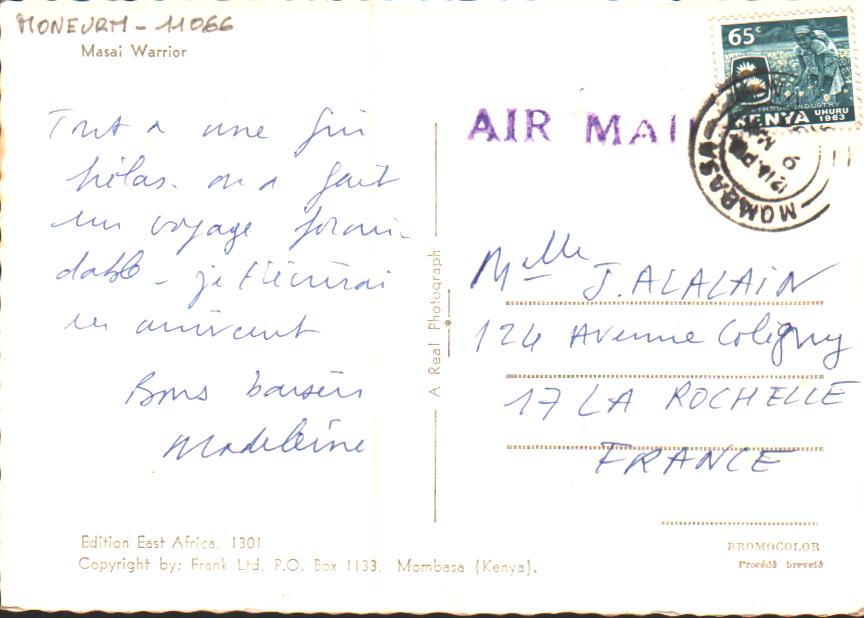 MONEURM - 11066
Masai Warrior
Tout a une fin
hélas. on a fait
un voyage formi-
dable - je t'écrirai
en arrivant
Bons baisers
Madeleine
Edition East Africa. 1301
Copyright by: Frank Ltd, P.O. Box 1133, Mombasa (Kenya).
A Real Photograph
65c
INDUSTRY
KENYA UHURU 1963
AIR MAI
MOMBASA
Melle J. ALALAIN
124 Avenue Coligny
17 LA ROCHELLE
FRANCE
BROMOCOLOR
Procédé breveté